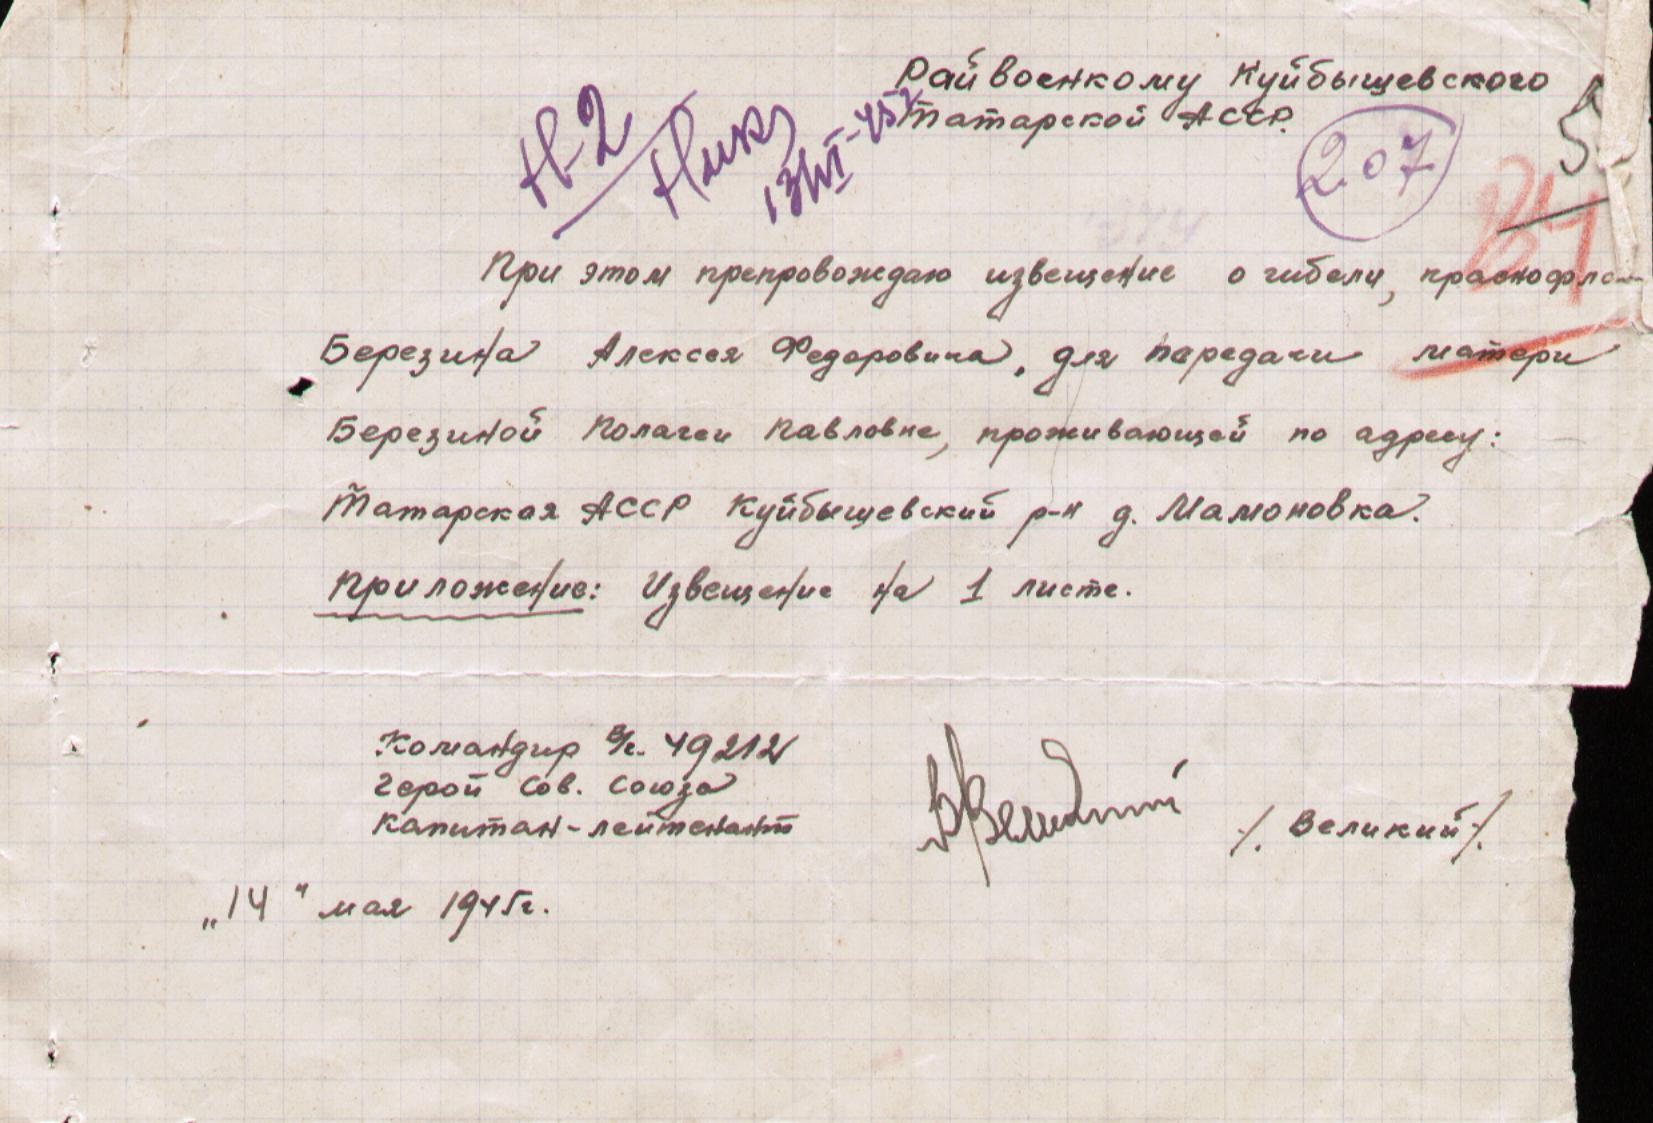 Райвоенкому Куйбышевского
Татарской АССР.
Н-2
13/VI-45г
207
При этом препровождаю извещение о гибели, краснофло
Березина Алексея Федоровича, для передачи матери
Березиной Полагеи Павловне, проживающей по адресу:
Татарская АССР Куйбышевский р-н д. Мамоновка.
Приложение: Извещение на 1 листе.
Командир в/ч. 49212
Герой Сов. Союза
Капитан-лейтенант
/. Великий/.
„14" мая 1945г.